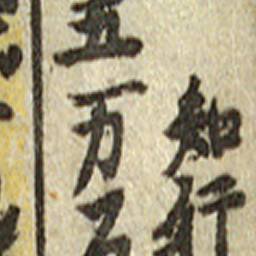 知行
五万石